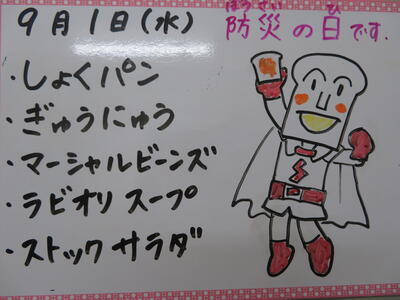 9月1日(水)
防災の日です。
ぼうさい ひ
・しょくパン
・ぎゅうにゅう
・マーシャルビーンズ
・ラビオリ スープ
・ストック サラダ